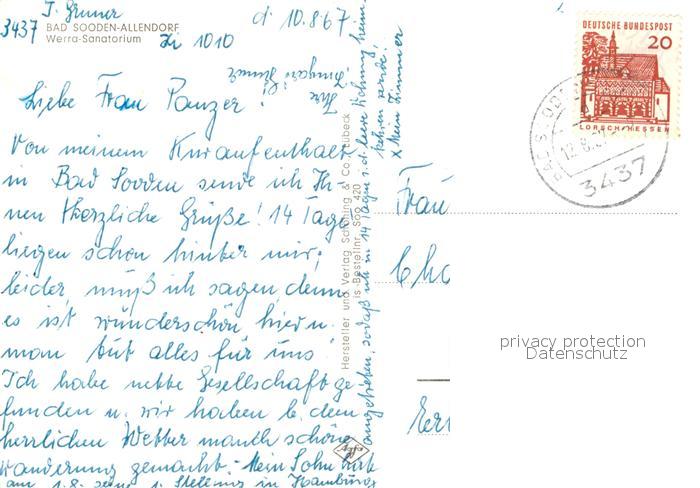 I. Gruner
d. 10.8.67.
3437 BAD SOODEN-ALLENDORF
Werra-Sanatorium
Zi 1010
Liebe Frau Panzer!
Von meinem Kuraufenthalt
in Bad Sooden sende ich Ih-
nen herzliche Grüße! 14 Tage
liegen schon hinter mir,
leider, muß ich sagen, denn
es ist wunderschön hier u.
man tut alles für uns!
Ich habe nette Gesellschaft ge
funden u. wir haben b. dem
herrlichen Wetter manch schöne
Wanderung gemacht. - Mein Sohn hat
am 1.8. seine 1. Stellung in Hamburg
angetreten, sodaß ich in 14 Tagen i. d. leere Wohnung heim
kehren werde.
x Mein Zimmer
Ihre
Hersteller und Verlag Schöning & Co., Lübeck
Bestellnr. Soo 420
Agfa
DEUTSCHE BUNDESPOST
20
LORSCH/HESSEN
3437
Frau
privacy protection
Datenschutz